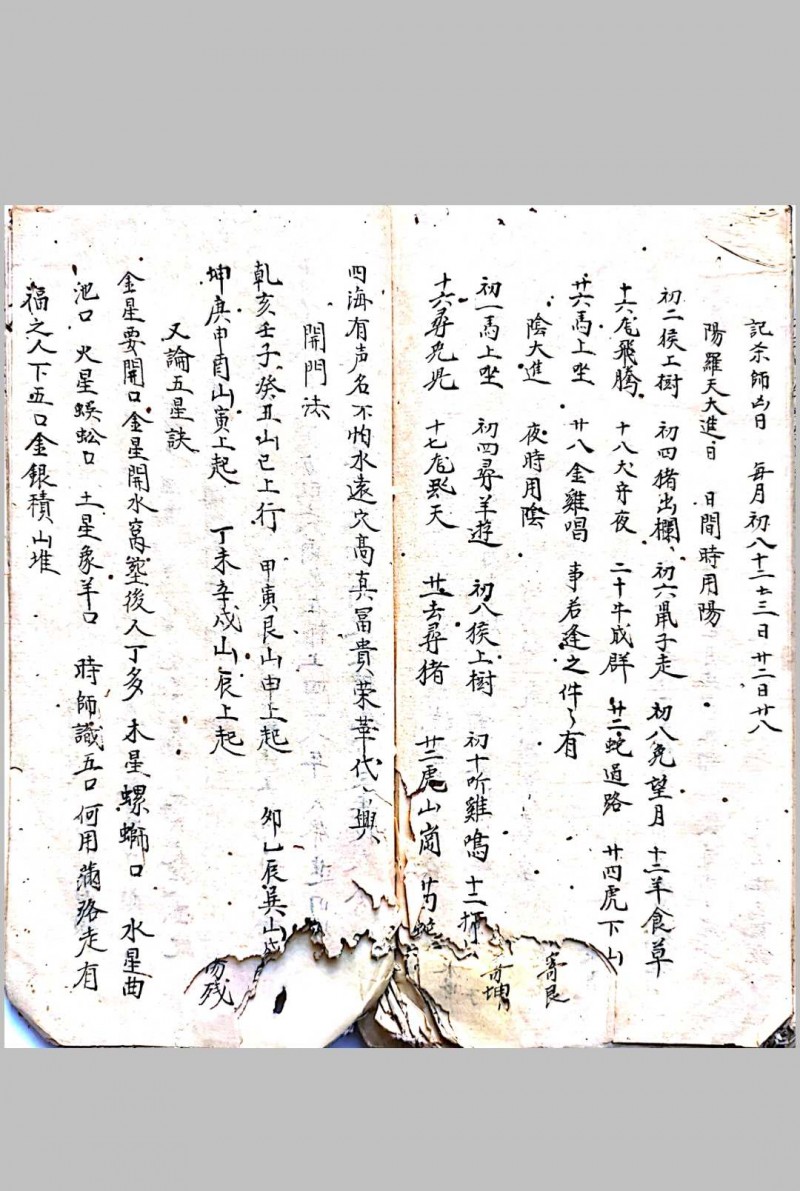 記宗師凶日 每月初八十二十三日廿二日廿八
陽羅天大進日 日間時用陽
初二猴上樹 初四猪出欄、初六鼠子走 初八兔望月 十二羊食草
十六龙飛騰 十八犬守夜 二十牛成群 廿二蛇過路 廿四虎下山
廿六馬上坐 廿八金雞唱 事若逢之件〻有
陰大進 夜時用陰
初一馬上坐 初四尋羊遊 初八猴上樹 初十听雞鳴 十二
十六尋兔児 十七龙飛天 廿去尋猪 廿二虎山崗
寄艮
寄坤
四海有声名不怕水遠穴高真冨貴荣華代〻興
開門法
乹亥壬子癸丑山巳上行 甲寅艮山申上起 夘乙辰巽山
坤庚申酉山寅上起 丁未辛戍山辰上起
勿残
又論五星訣
金星要開口金星開水窩塟後人丁多 木星螺螄口 水星曲
池口 火星蜈蚣口 土星象羊口 時師識五口何用滿路走有
福之人下五口金銀積山堆